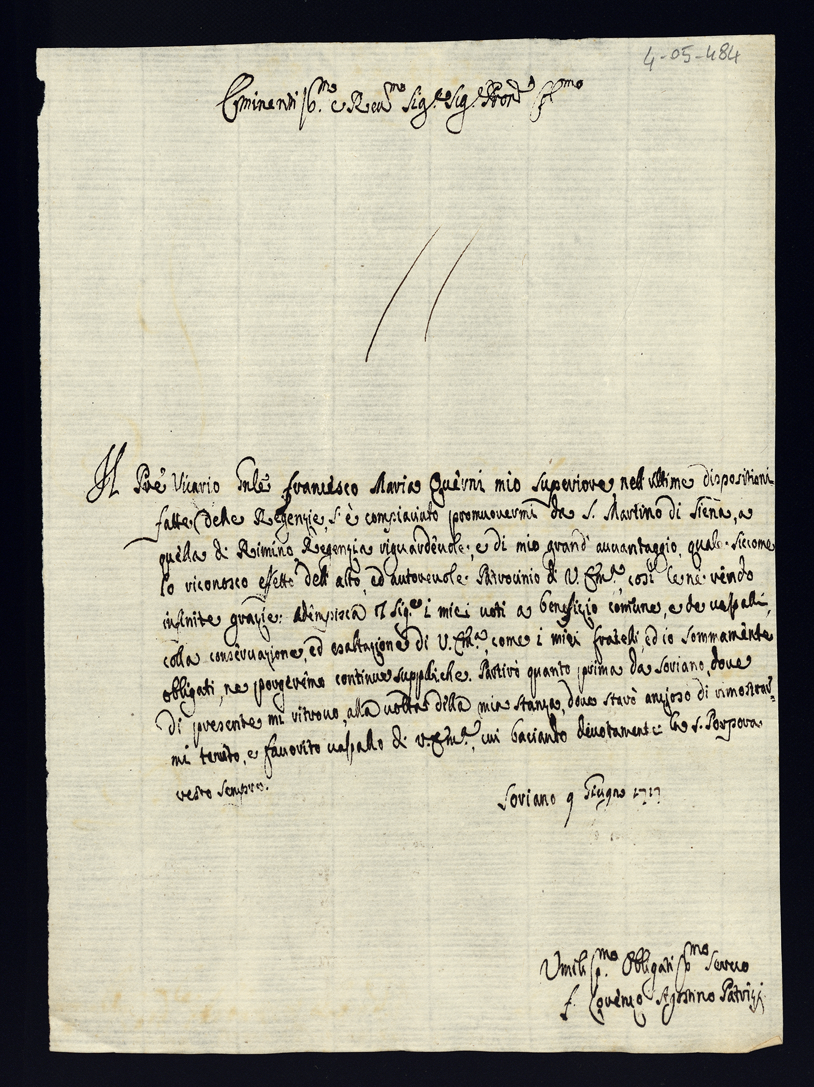 4-05-484
Eminentiss.mo e Rev.mo Sig.re Sig.re Pron
Il Pre Vicario Gnle Francesco Maria Querni mio Superiore nell'ultime dispositioni
fatte delle Regenzie, s'è compiaciuto promuovermi da S. Martino di Siena, a
quella di Rimino Regenzia riguardevole, e di mio grand' avvantaggio, quale siccome
lo riconosco effetto dell'alto, ed autorevole Patrocinio di V. Em.a, così le ne rendo
infinite grazie: adempisca il Sig.re i miei voti a beneficio comune, e de vassalli,
colla conservazione, ed esaltazione di V. Em.a, come i miei fratelli, ed io sommamente
obligati, ne porgeremo continue suppliche. Partirò quanto prima da Soriano, dove
di presente mi ritrovo, alla volta della mia stanza, dove starò anzioso di rimostrar-
mi tenuto, e favorito vassallo di V. Em.a, cui baciando devotamente la S. Porpora
resto sempre.
Soriano 9 Giugno 1717
Umiliss.mo Obligatiss.mo Servo
f. Lorenzo Agostino Patrizi